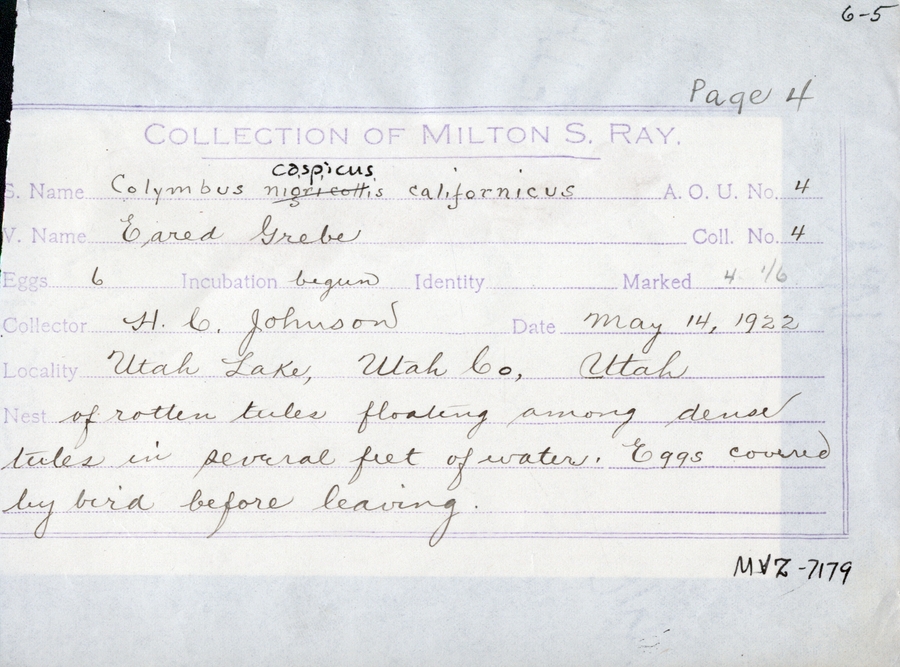 6-5
Page 4
COLLECTION OF MILTON S. RAY.
caspicus
S. Name Colymbus nigricollis californicus A. O. U. No. 4
V. Name Eared Grebe Coll. No. 4
Eggs 6 Incubation begun Identity Marked 4 1/6
Collector H. C. Johnson Date May 14, 1922
Locality Utah Lake, Utah Co, Utah
Nest of rotten tules floating among dense
tules in several feet of water. Eggs covered
by bird before leaving.
MVZ-7179